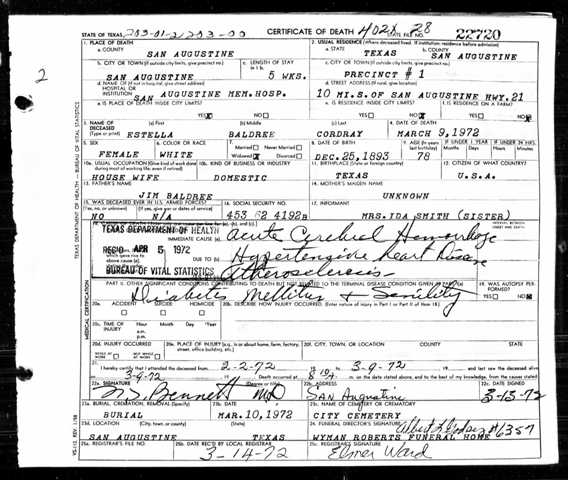 STATE OF TEXAS CERTIFICATE OF DEATH 402X 28 STATE FILE NO. 22720
1. PLACE OF DEATH 2. USUAL RESIDENCE (Where deceased lived. If institution: residence before admission)
a. COUNTY SAN AUGUSTINE a. STATE TEXAS b. COUNTY SAN AUGUSTINE
b. CITY OR TOWN (If outside city limits, give precinct no.) c. LENGTH OF STAY c. CITY OR TOWN (If outside city limits, give precinct no.)
SAN AUGUSTINE 5 WKS. PRECINCT # 1
d. NAME OF (If not in hospital, give street address) d. STREET ADDRESS (If rural, give location)
HOSPITAL OR
INSTITUTION SAN AUGUSTINE MEM.HOSP. 10 MI.S.OF SAN AUGUSTINE HWY.27
e. IS PLACE OF DEATH INSIDE CITY LIMITS? e. IS RESIDENCE INSIDE CITY LIMITS? f. IS RESIDENCE ON A FARM?
YES NO YES NO YES NO
3. NAME OF DECEASED (a) First (b) Middle (c) Last 4. DATE OF DEATH
(Type or print) ESTELLA BALDREE CORDRAY MARCH 9,1972
5. SEX 6. COLOR OR RACE 7. Married Never Married 8. DATE OF BIRTH 9. AGE (In years last birthday) IF UNDER 1 YEAR IF UNDER 24 HRS.
FEMALE WHITE Widowed Divorced DEC.25,1893 78 Months Days Hours Min.
10a. USUAL OCCUPATION (Give kind of work done during most of working life, even if retired) 10b. KIND OF BUSINESS OR INDUSTRY 11. BIRTHPLACE (State or foreign country) 12. CITIZEN OF WHAT COUNTRY?
HOUSE WIFE DOMESTIC TEXAS U.S.A.
13. FATHER'S NAME 14. MOTHER'S MAIDEN NAME
JIM BALDREE UNKNOWN
15. WAS DECEASED EVER IN U.S. ARMED FORCES? 16. SOCIAL SECURITY NO. 17. INFORMANT
(Yes, no, or unknown) (If yes, give war or dates of service)
NO N/A 453 62 4192B MRS.IDA SMITH (SISTER)
TEXAS DEPARTMENT OF HEALTH
IMMEDIATE CAUSE (a) Acute Cerebral Hemorrhage
REC'D APR 5 1972
DUE TO (b) Hypertensive heart Disease
BUREAU OF VITAL STATISTICS Atherosclerosis
PART II. OTHER SIGNIFICANT CONDITIONS CONTRIBUTING TO DEATH BUT NOT RELATED TO THE TERMINAL DISEASE CONDITION GIVEN IN PART I(a) 19. WAS AUTOPSY PERFORMED?
Diabetes Mellitus & Senility YES NO
20a. ACCIDENT SUICIDE HOMICIDE 20b. DESCRIBE HOW INJURY OCCURRED. (Enter nature of injury in Part I or Part II of item 18)
20c. TIME OF INJURY Hour a.m. p.m. Month Day Year
20d. INJURY OCCURRED 20e. PLACE OF INJURY (e.g., in or about home, farm, factory, street, office building, etc.) 20f. CITY, TOWN, OR LOCATION COUNTY STATE
WHILE AT WORK NOT WHILE AT WORK
21. I hereby certify that I attended the deceased from 2-2-72 to 3-9-72 and last saw the deceased alive
3-9-72 Death occurred at 8 10 m. on the date stated above, and to the best of my knowledge, from the causes stated
22a. SIGNATURE (Degree or title) 22b. ADDRESS 22c. DATE SIGNED
Bennett MD San Augustine 3-13-72
23a. BURIAL, CREMATION, REMOVAL (Specify) 23b. DATE 23c. NAME OF CEMETERY OR CREMATORY
BURIAL MAR.10,1972 CITY CEMETERY
23d. LOCATION (City, town, or county) (State) 24. FUNERAL DIRECTOR'S SIGNATURE #6357
SAN AUGUSTINE TEXAS WYMAN ROBERTS FUNERAL HOME
25a. REGISTRAR'S FILE NO. 25b. DATE REC'D BY LOCAL REGISTRAR 25c. REGISTRAR'S SIGNATURE
3-14-72 Elmer Ward
TEXAS DEPARTMENT OF HEALTH — BUREAU OF VITAL STATISTICS
MEDICAL CERTIFICATION
VS-112 REV. 1/58
2